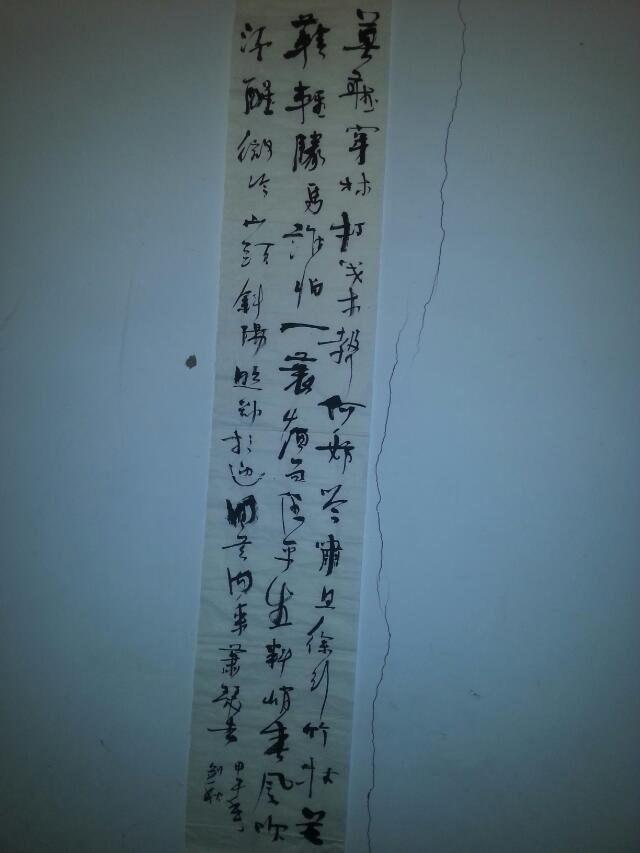 莫聽穿林打葉聲何妨吟嘯且徐行竹杖芒
鞋輕勝馬誰怕一蓑煙雨任平生料峭春風吹
酒醒微冷山頭斜陽照卻相迎回首向來蕭瑟
甲子